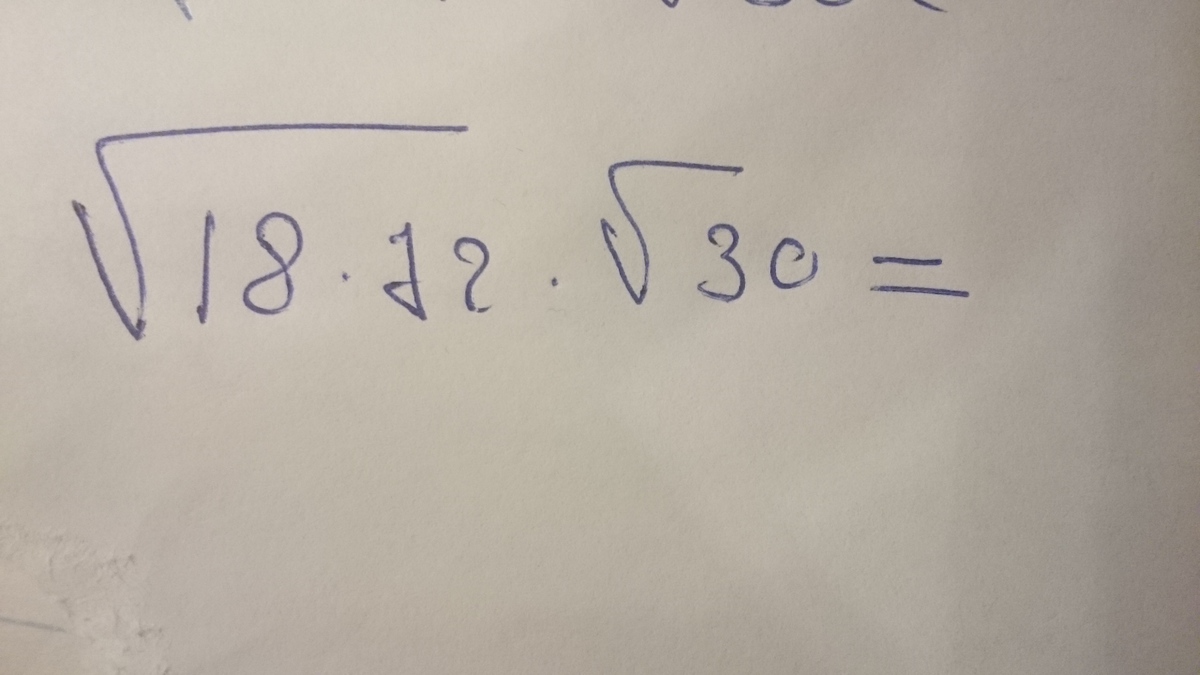 √18·72 · √30 =